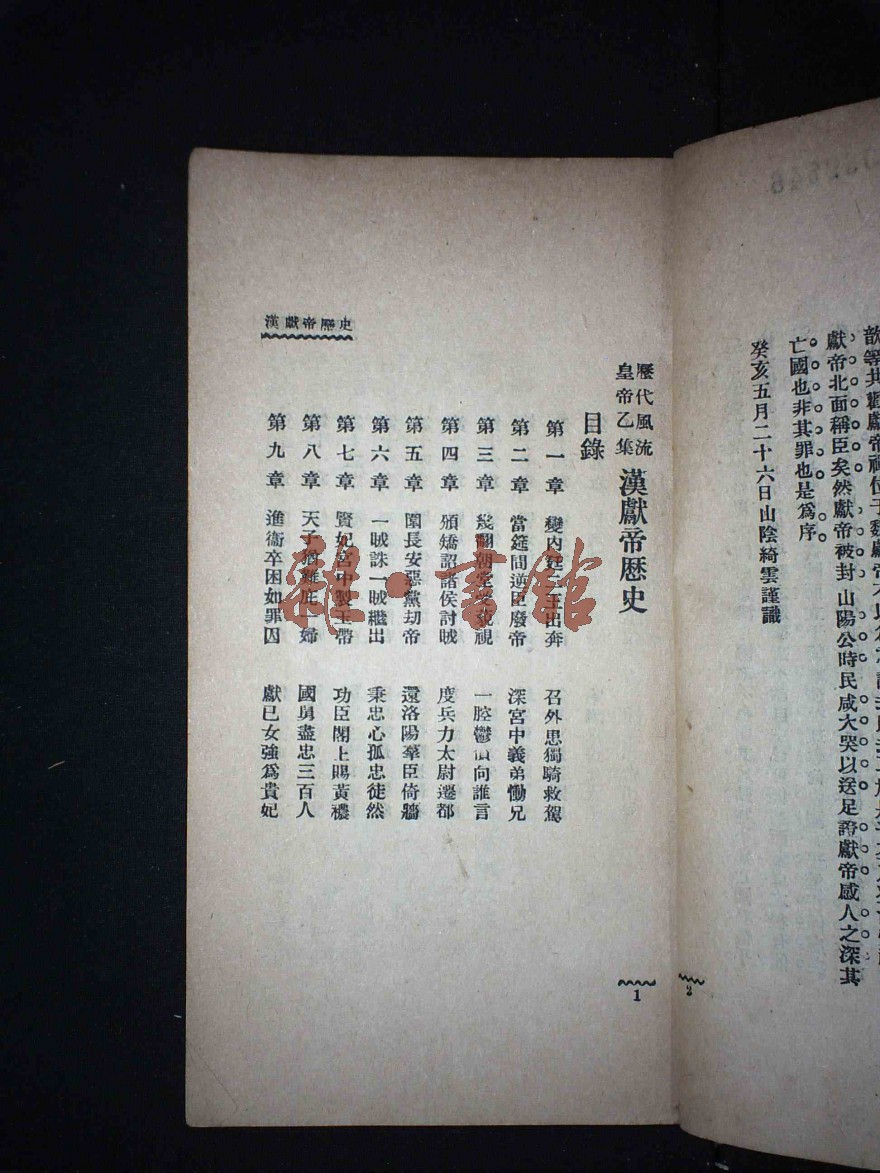 獻帝北面稱臣矣然獻帝被封山陽公時民咸大哭以送足證獻帝感人之深其
亡國也非其罪也是為序
癸亥五月二十六日山陰綺雲謹識
2
歷代風流
皇帝乙集
漢獻帝歷史
目錄
第一章 變內 出奔 召外思獨騎救駕
第二章 當筵間逆臣廢帝 深宮中義弟慟兄
第三章 翻朝堂 視 一腔鬱憤向誰言
第四章 頒矯詔諸侯討賊 度兵力太尉遷都
第五章 圍長安惡黨刧帝 還洛陽羣臣倚牆
第六章 一賊誅一賊繼出 秉忠心孤忠徒然
第七章 賢妃宮中製玉帶 功臣閣上賜黃襛
第八章 天子猶難庇一婦 國舅盡忠三百人
第九章 進衞卒困如罪囚 獻已女強為貴妃
漢獻帝歷史
1
龍·書館